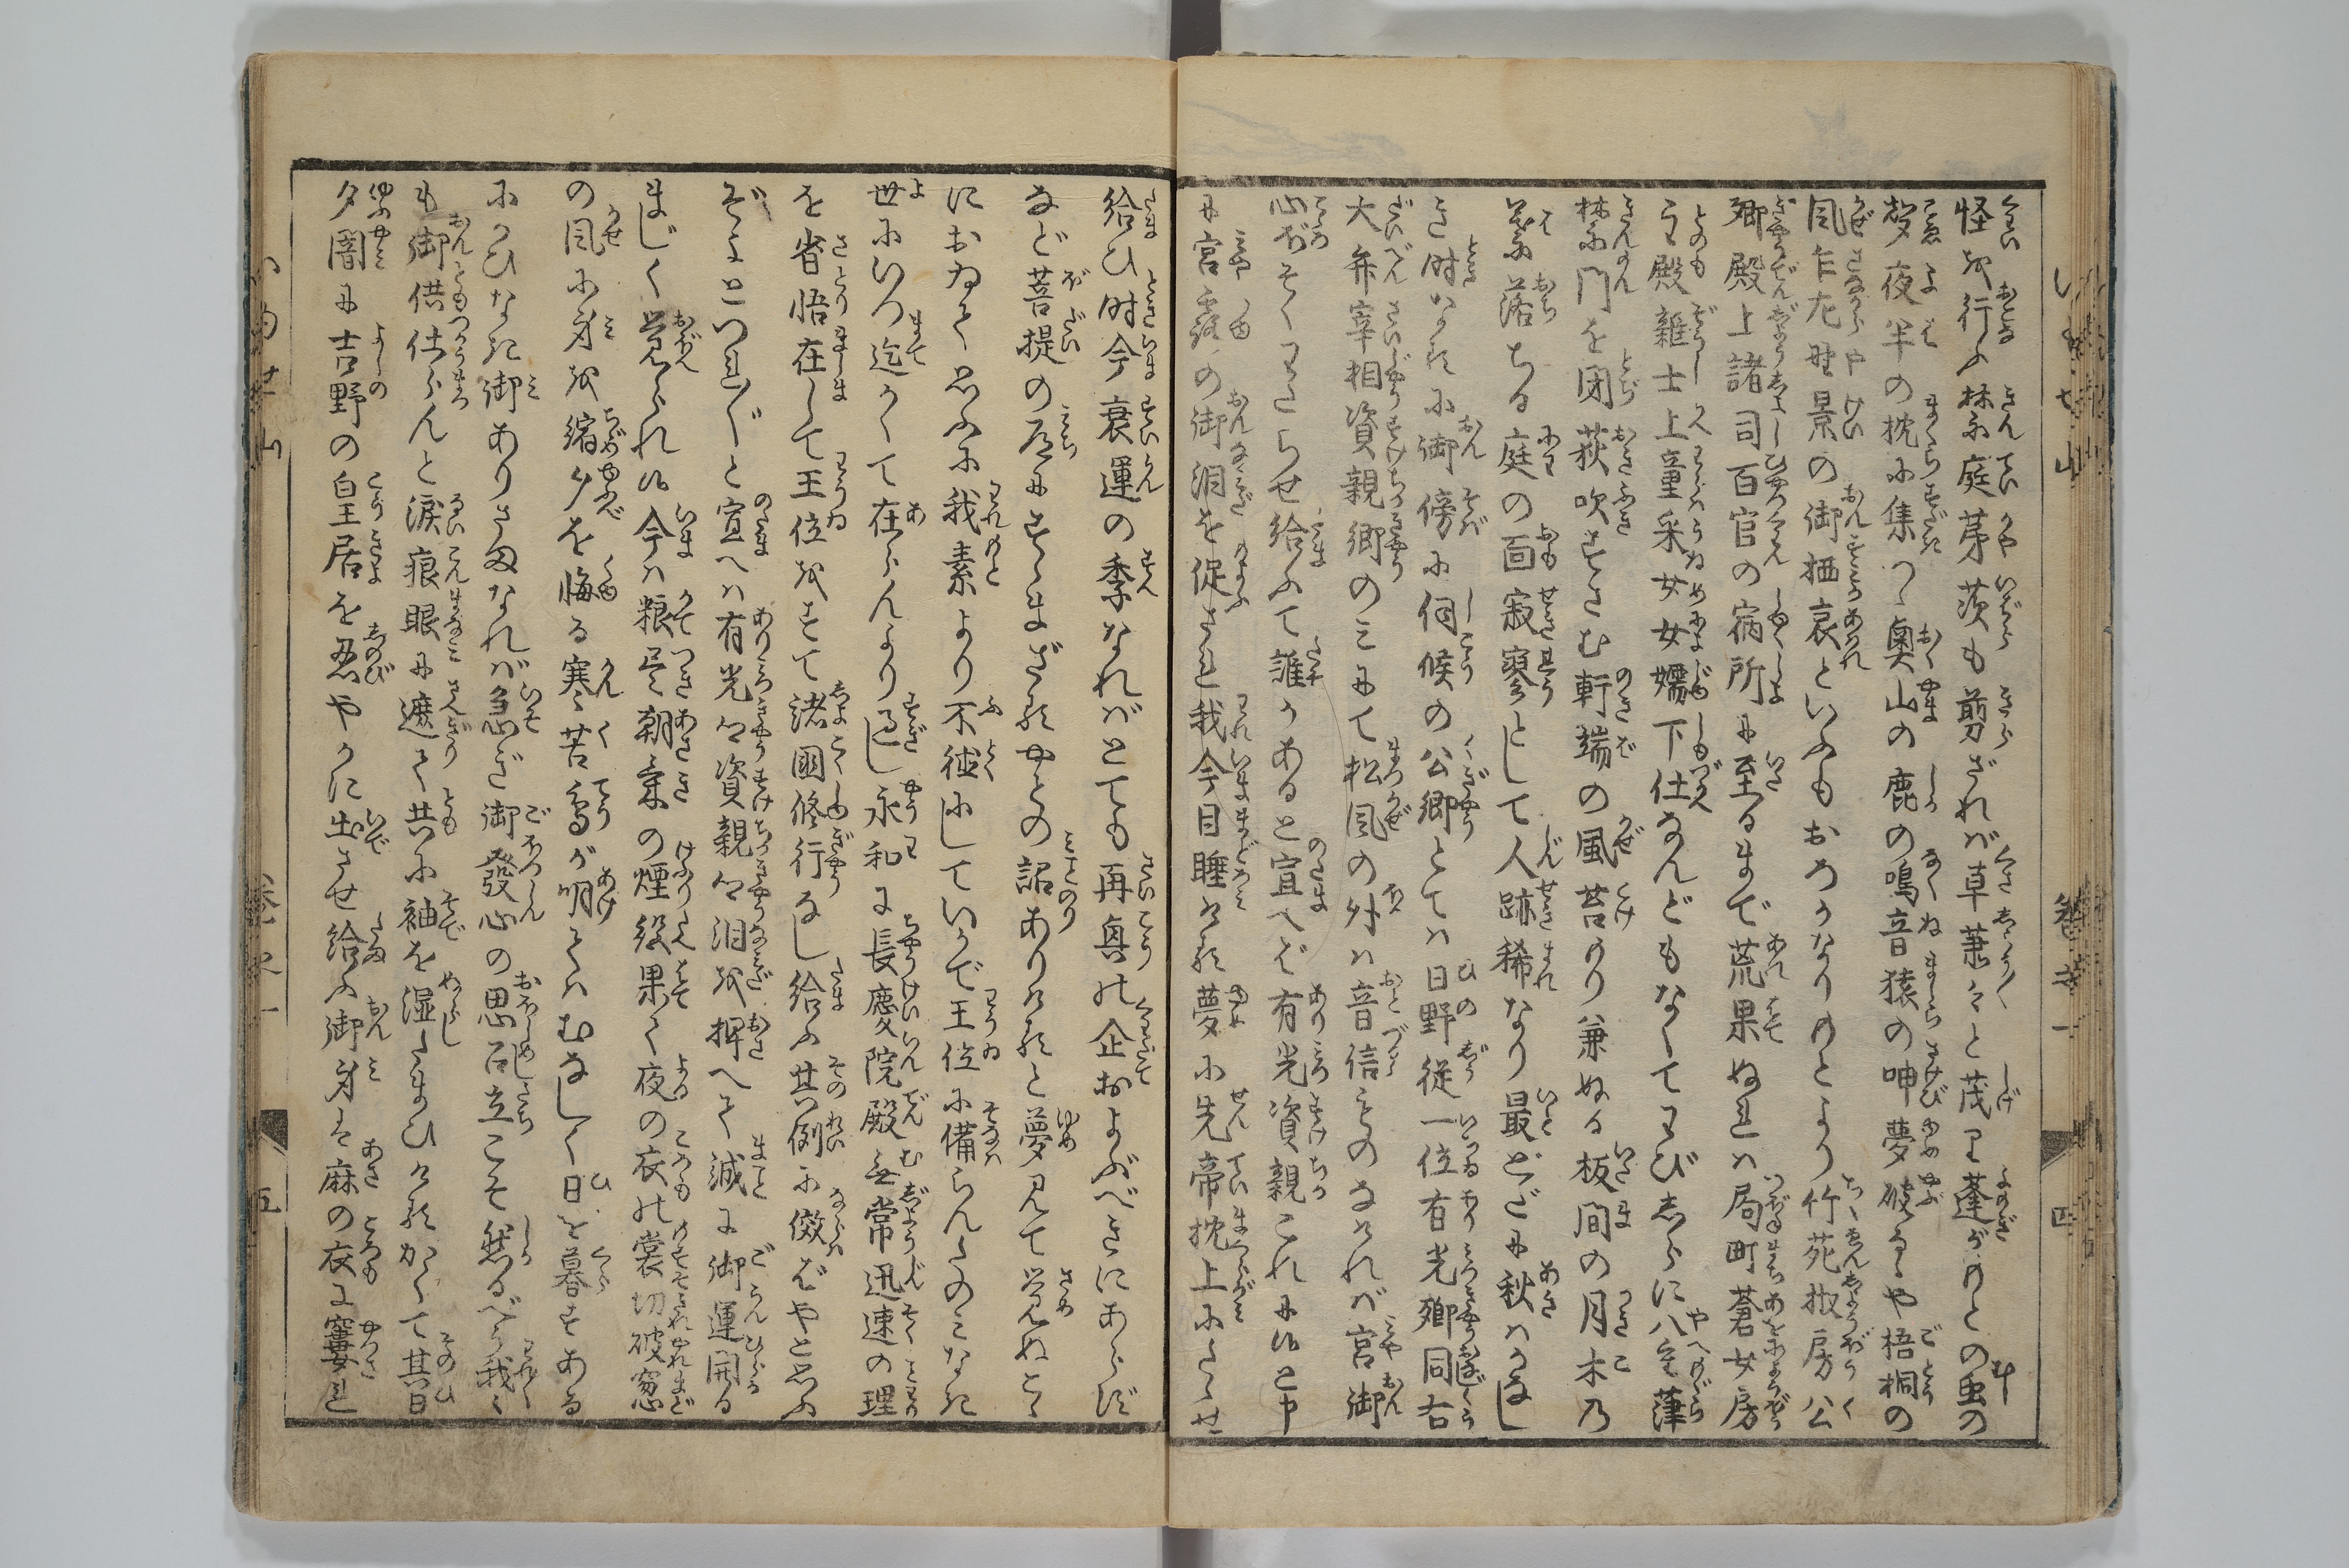 怪を行ふ禁庭茅茨も剪ざれば草萧々と茂り蓬がもとの虫の
声夜半の枕に集つゝ奥山の鹿の鳴音猿の呻夢破るゝや梧桐の
風乍左野景の御栖哀といふもおろかなりもとより竹苑椒房公
卿殿上諸司百官の宿所に至るまで荒果ぬれは局町蒼女房
主殿雑士上童采女女孺下仕なんどもなくてわびしらに八重葎
禁門を閉荻吹すさむ軒端の風苔のり兼ぬる板間の月木乃
葉落ちる庭の面寂寥として人跡稀なり最どだに秋はかなし
き時なるに御傍に伺候の公卿とては日野従一位有光卿同右
大弁宰相資親卿のみにて松風の外は音信ものなければ宮御
心ぼそくわたらせ給ふて誰かあると宣へば有光資親これに候と申
に宮露の御泪を促され我今目睡ける夢に先帝枕上にたゝせ
給ひ時今衰運の季なればとても再興の企およぶべきにあらず
など菩提の道にすゝまざるやとの詔ありけると夢見て覚ぬこゝ
におゐて思ふに我素より不徳にしていかで王位に備らんたのみなき
世にいつ迄かくて在らんより過し永和に長慶院殿無常迅速の理
を省悟在して王位をすて諸国修行なし給ふ其例に倣ばやと思ふ
ぞよとつれ〴〵と宣へは有光卿資親卿泪を押へて誠に御運開る
まじく覚られ候今は粮尽朝餉の煙絶果て夜の衣の裳切破窓
の風に身を縮夕を悔る寒苦鳥が明てはむなしく日を暮すある
にかひなき御ありさまなれば急ぎ御発心の思召立こそ然るべう我々
も御供仕らんと涙痕眼に遮て共に袖を湿したまひけるかくて其日
夕闇に吉野の皇居を忍びやかに出させ給ふ御身は麻の衣に窶れ
巻之一
四
五